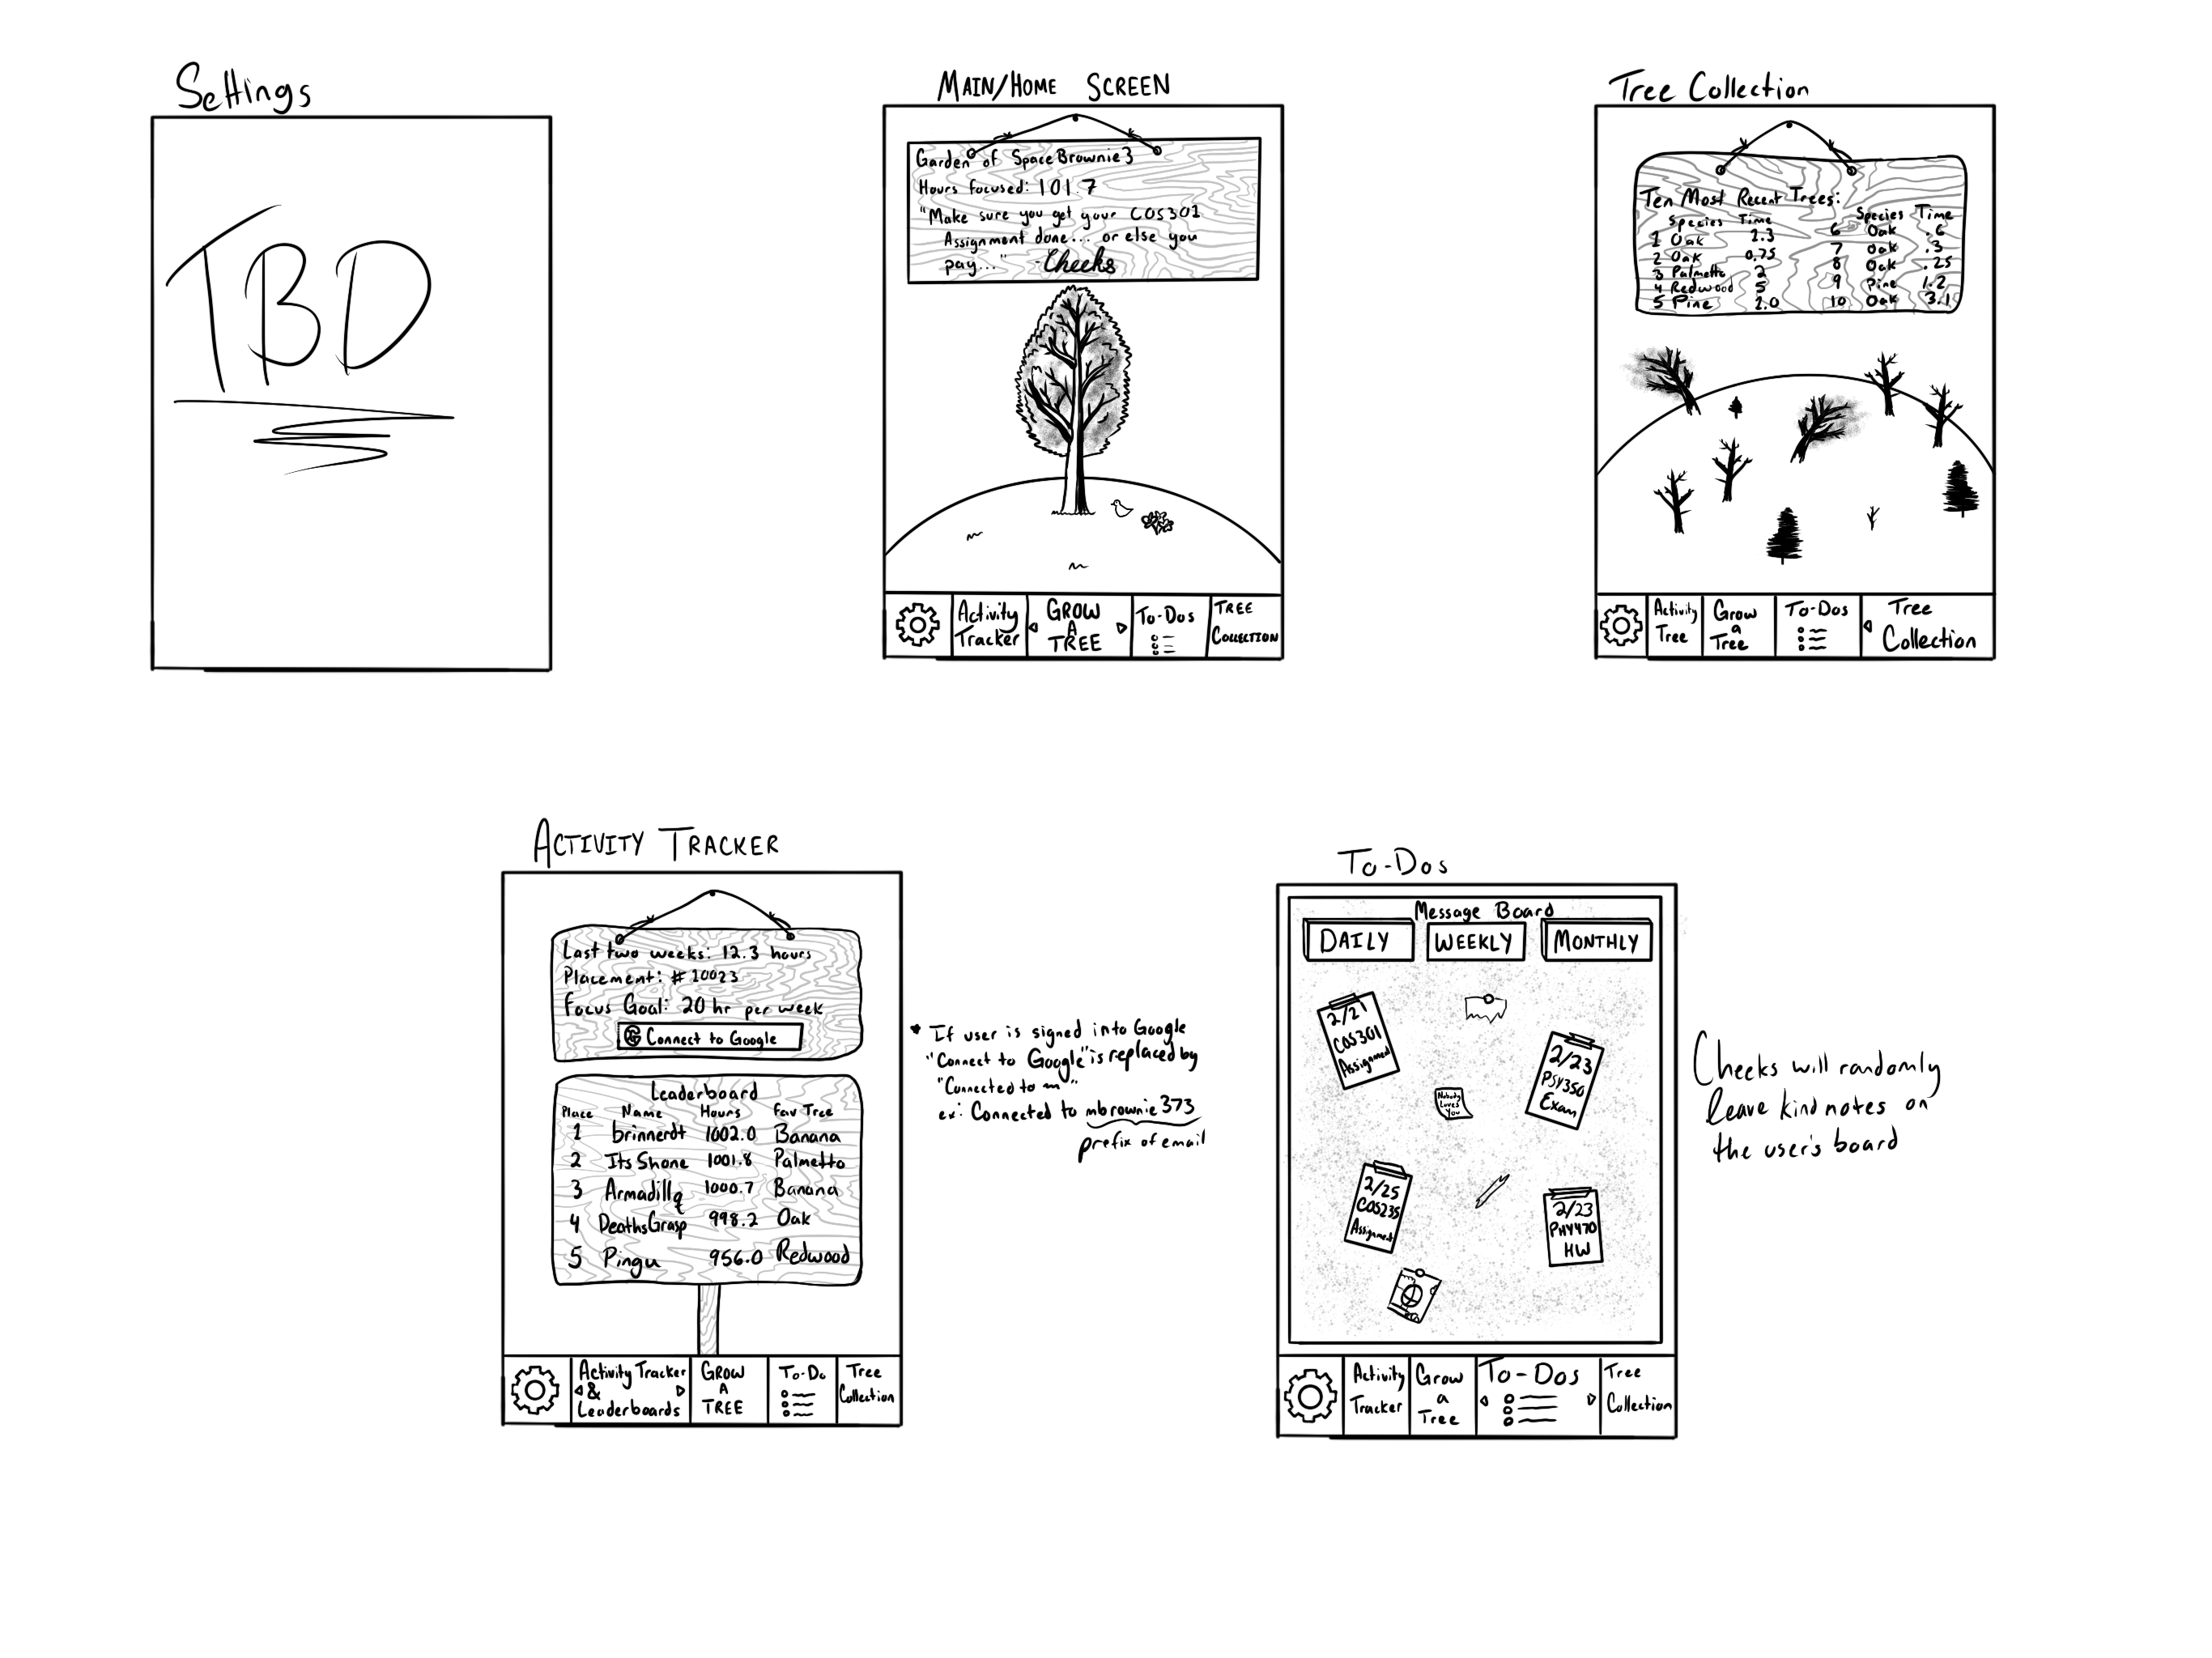 Settings
TBD
MAIN/HOME SCREEN
Garden of SpaceBrownie3
Hours focused: 101.7
"Make sure you get your COS301
Assignment done... or else you
pay..." -Cheeks
Activity
Tracker
GROW
A
TREE
To-Dos
TREE
COLLECTION
Tree Collection
Ten Most Recent Trees:
Species Time
1 Oak 2.3
2 Oak 0.75
3 Palmetto 2
4 Redwood 5
5 Pine 2.0
Species Time
6 Oak .6
7 Oak .3
8 Oak .25
9 Pine 1.2
10 Oak 3.1
Activity
Tree
Grow
a
Tree
To-Dos
Tree
Collection
ACTIVITY TRACKER
Last two weeks: 12.3 hours
Placement: #10023
Focus Goal: 20 hr per week
G Connect to Google
Leaderboard
Place Name Hours Fav Tree
1 brinnerdt 1002.0 Banana
2 ItsShone 1001.8 Palmetto
3 Armadillq 1000.7 Banana
4 DeathsGrasp 998.2 Oak
5 Pingu 956.0 Redwood
Activity Tracker
&
Leaderboards
GROW
A
TREE
To-Do
Tree
Collection
* If user is signed into Google
"Connect to Google" is replaced by
"Connected to ~"
ex: Connected to mbrownie373
prefix of email
To-Dos
Message Board
DAILY
WEEKLY
MONTHLY
2/21
COS301
Assignment
2/23
PSY350
Exam
Nobody
Loves
You
2/25
COS235
Assignment
2/23
PHY470
HW
Activity
Tracker
Grow
a
Tree
To-Dos
Tree
Collection
Cheeks will randomly
leave kind notes on
the user's board